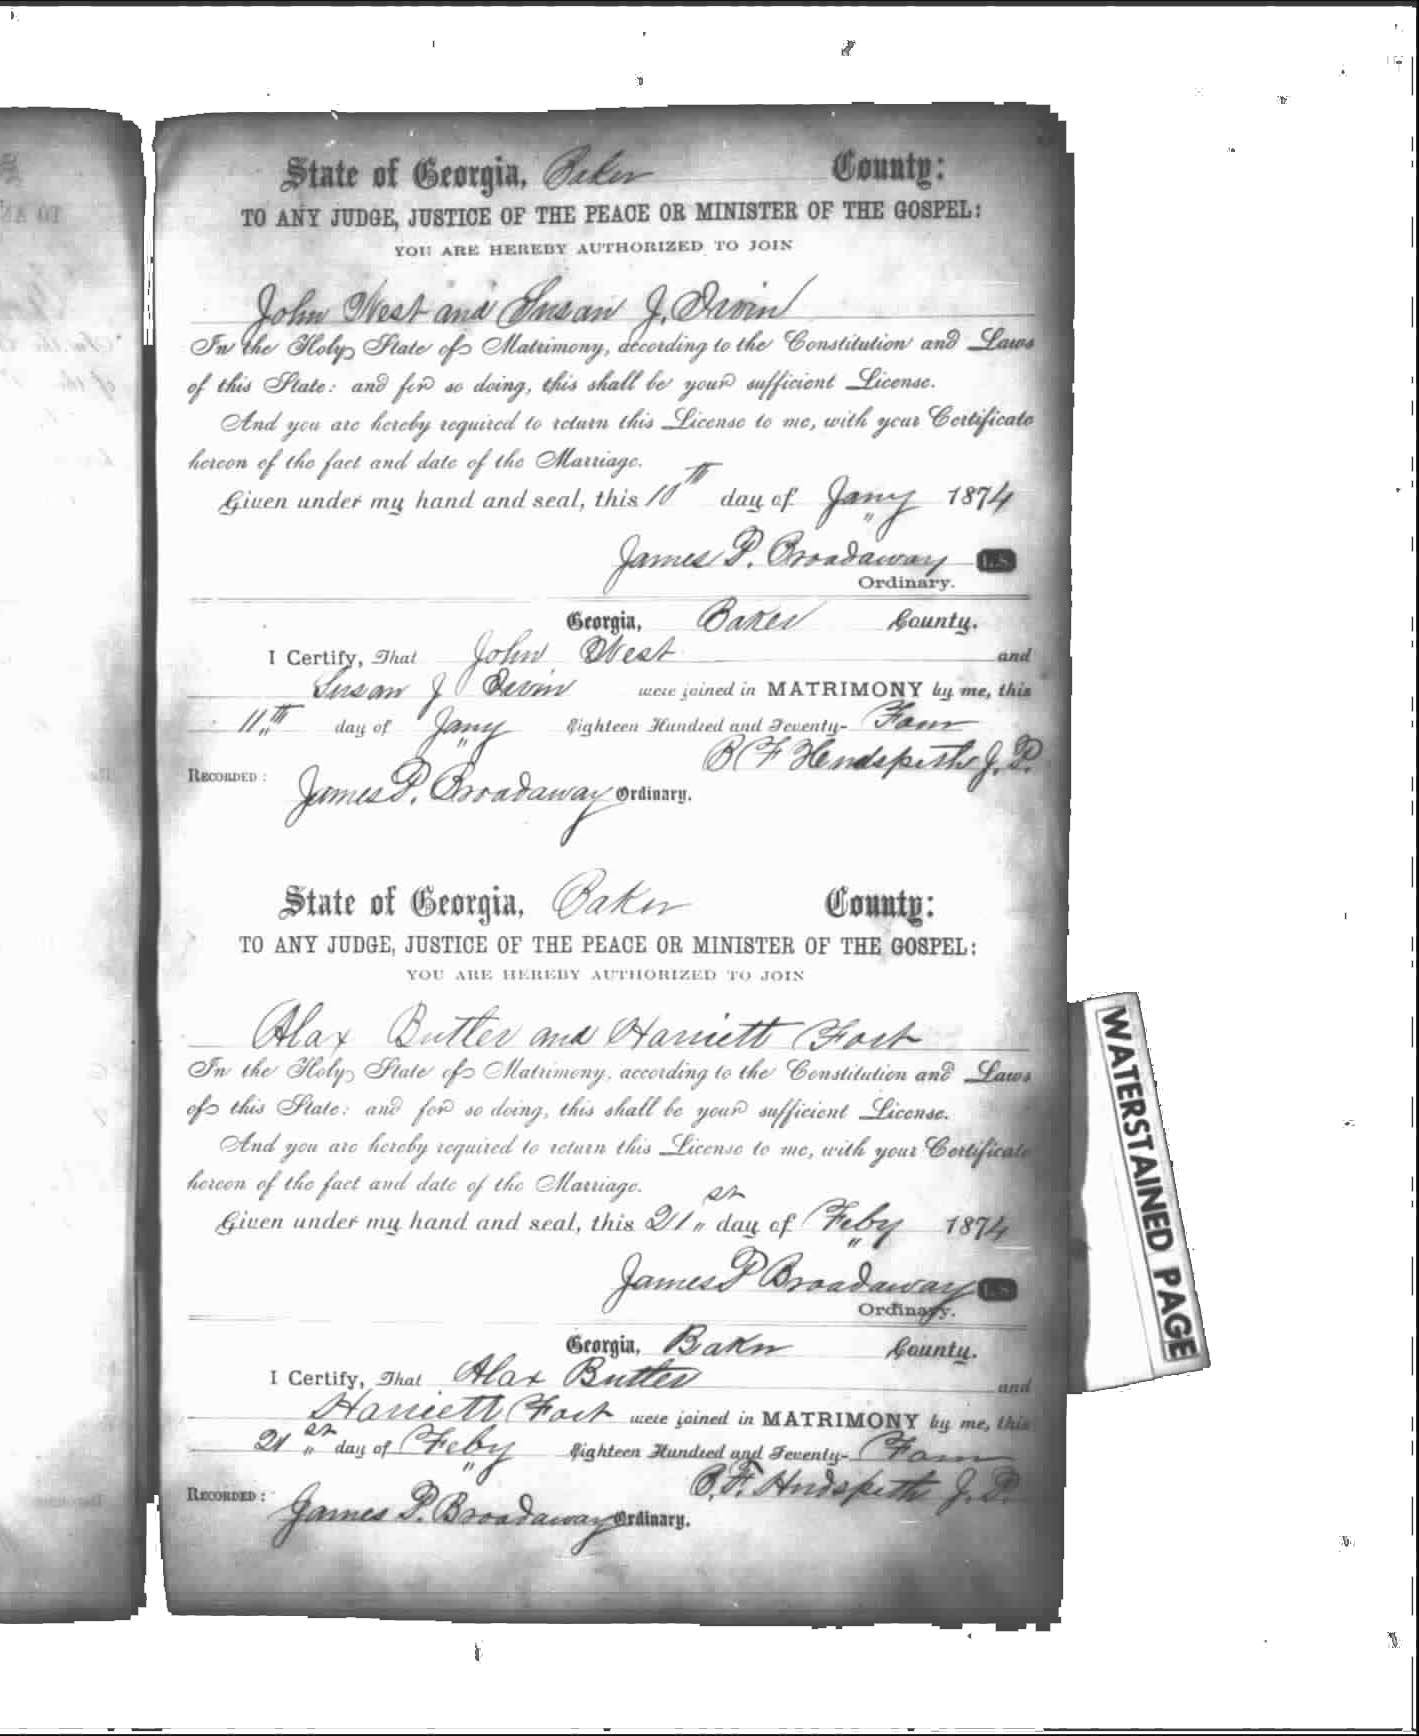 State of Georgia, Baker County:
TO ANY JUDGE, JUSTICE OF THE PEACE OR MINISTER OF THE GOSPEL:
YOU ARE HEREBY AUTHORIZED TO JOIN
John West and Susan J. Irvin
In the Holy State of Matrimony, according to the Constitution and Laws
of this State: and for so doing, this shall be your sufficient License.
And you are hereby required to return this License to me, with your Certificate
hereon of the fact and date of the Marriage.
Given under my hand and seal, this 10th day of Jany 1874
James P. Broadaway L.S.
Ordinary.
Georgia, Baker County.
I Certify, That John West and
Susan J Irvin were joined in MATRIMONY by me, this
11th day of Jany Eighteen Hundred and Seventy- Four
B F Hudspeth J. P.
RECORDED: James P. Broadaway Ordinary.
State of Georgia, Baker County:
TO ANY JUDGE, JUSTICE OF THE PEACE OR MINISTER OF THE GOSPEL:
YOU ARE HEREBY AUTHORIZED TO JOIN
Alax Butler and Harriett Fort
In the Holy State of Matrimony, according to the Constitution and Laws
of this State: and for so doing, this shall be your sufficient License.
And you are hereby required to return this License to me, with your Certificate
hereon of the fact and date of the Marriage.
Given under my hand and seal, this 21st day of Feby 1874
James P Broadaway L.S.
Ordinary.
Georgia, Baker County.
I Certify, That Alax Butler and
Harriett Fort were joined in MATRIMONY by me, this
21st day of Feby Eighteen Hundred and Seventy- Four
B. F. Hudspeth J. P.
RECORDED: James P. Broadaway Ordinary.
WATERSTAINED PAGE